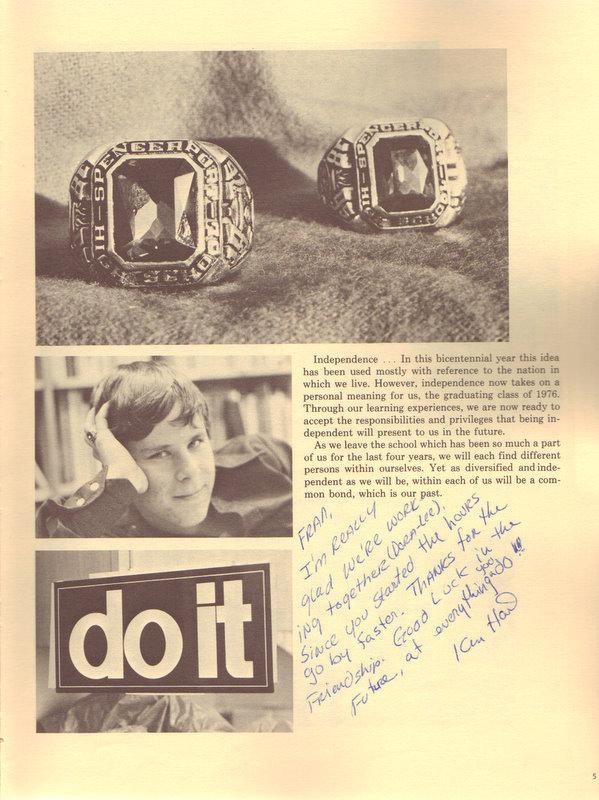 HI - SPENCERPORT
SCHOOL
HI - SPENCERPORT
SCHOOL
Independence . . . In this bicentennial year this idea
has been used mostly with reference to the nation in
which we live. However, independence now takes on a
personal meaning for us, the graduating class of 1976.
Through our learning experiences, we are now ready to
accept the responsibilities and privileges that being in-
dependent will present to us in the future.
As we leave the school which has been so much a part
of us for the last four years, we will each find different
persons within ourselves. Yet as diversified and inde-
pendent as we will be, within each of us will be a com-
mon bond, which is our past.
do it
FRAN,
I'm REALLY
glad we're work-
ing together
Since you started the hours
go by faster. THANKS for the
Friendship. Good Luck in the
Future, at everything you do!!!
Ken
5